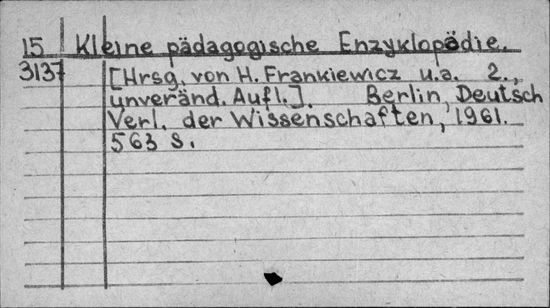 15 Kleine pädagogische Enzyklopädie.
3137 [Hrsg. von H. Frankiewicz u.a. 2.,
unveränd. Aufl.]. Berlin, Deutsch
Verl. der Wissenschaften, 1961.
563 S.